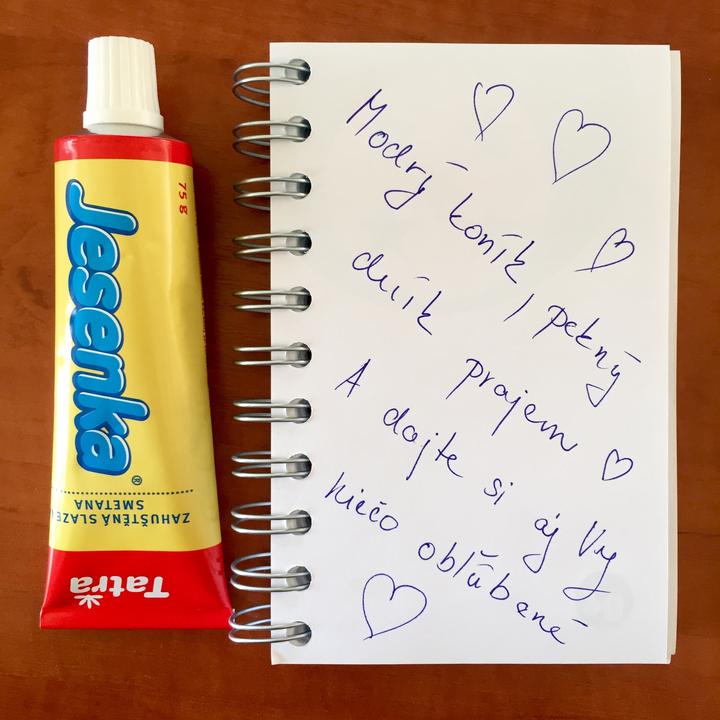 75 g
Jesenka®
ZAHUŠTĚNÁ SLAZE
SMETANA
Tatra
Modrý koník, pekný
dník prajem
A dajte si aj Vy
niečo obľúbené